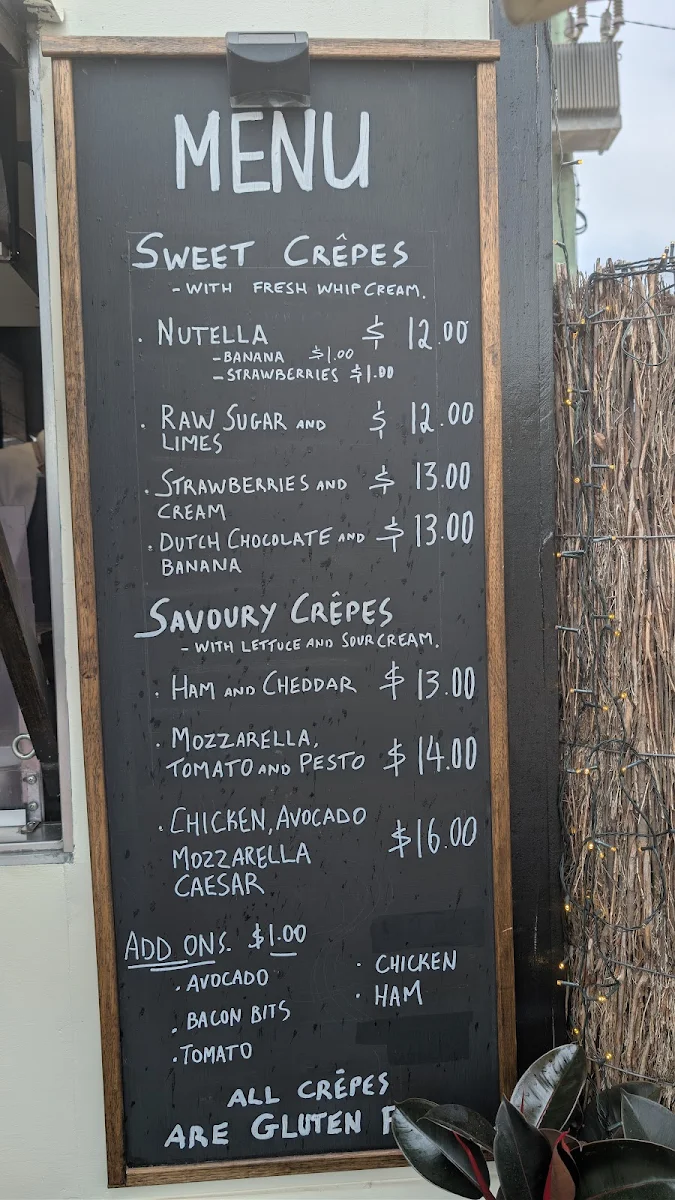 MENU
SWEET CRÊPES
- WITH FRESH WHIP CREAM.
· NUTELLA $ 12.00
- BANANA $1.00
- STRAWBERRIES $1.00
· RAW SUGAR AND $ 12.00
LIMES
· STRAWBERRIES AND $ 13.00
CREAM
· DUTCH CHOCOLATE AND $ 13.00
BANANA
SAVOURY CRÊPES
- WITH LETTUCE AND SOUR CREAM.
· HAM AND CHEDDAR $ 13.00
· MOZZARELLA,
TOMATO AND PESTO $ 14.00
· CHICKEN, AVOCADO
MOZZARELLA $16.00
CAESAR
ADD ONS. $1.00
· AVOCADO · CHICKEN
· BACON BITS · HAM
· TOMATO
ALL CRÊPES
ARE GLUTEN